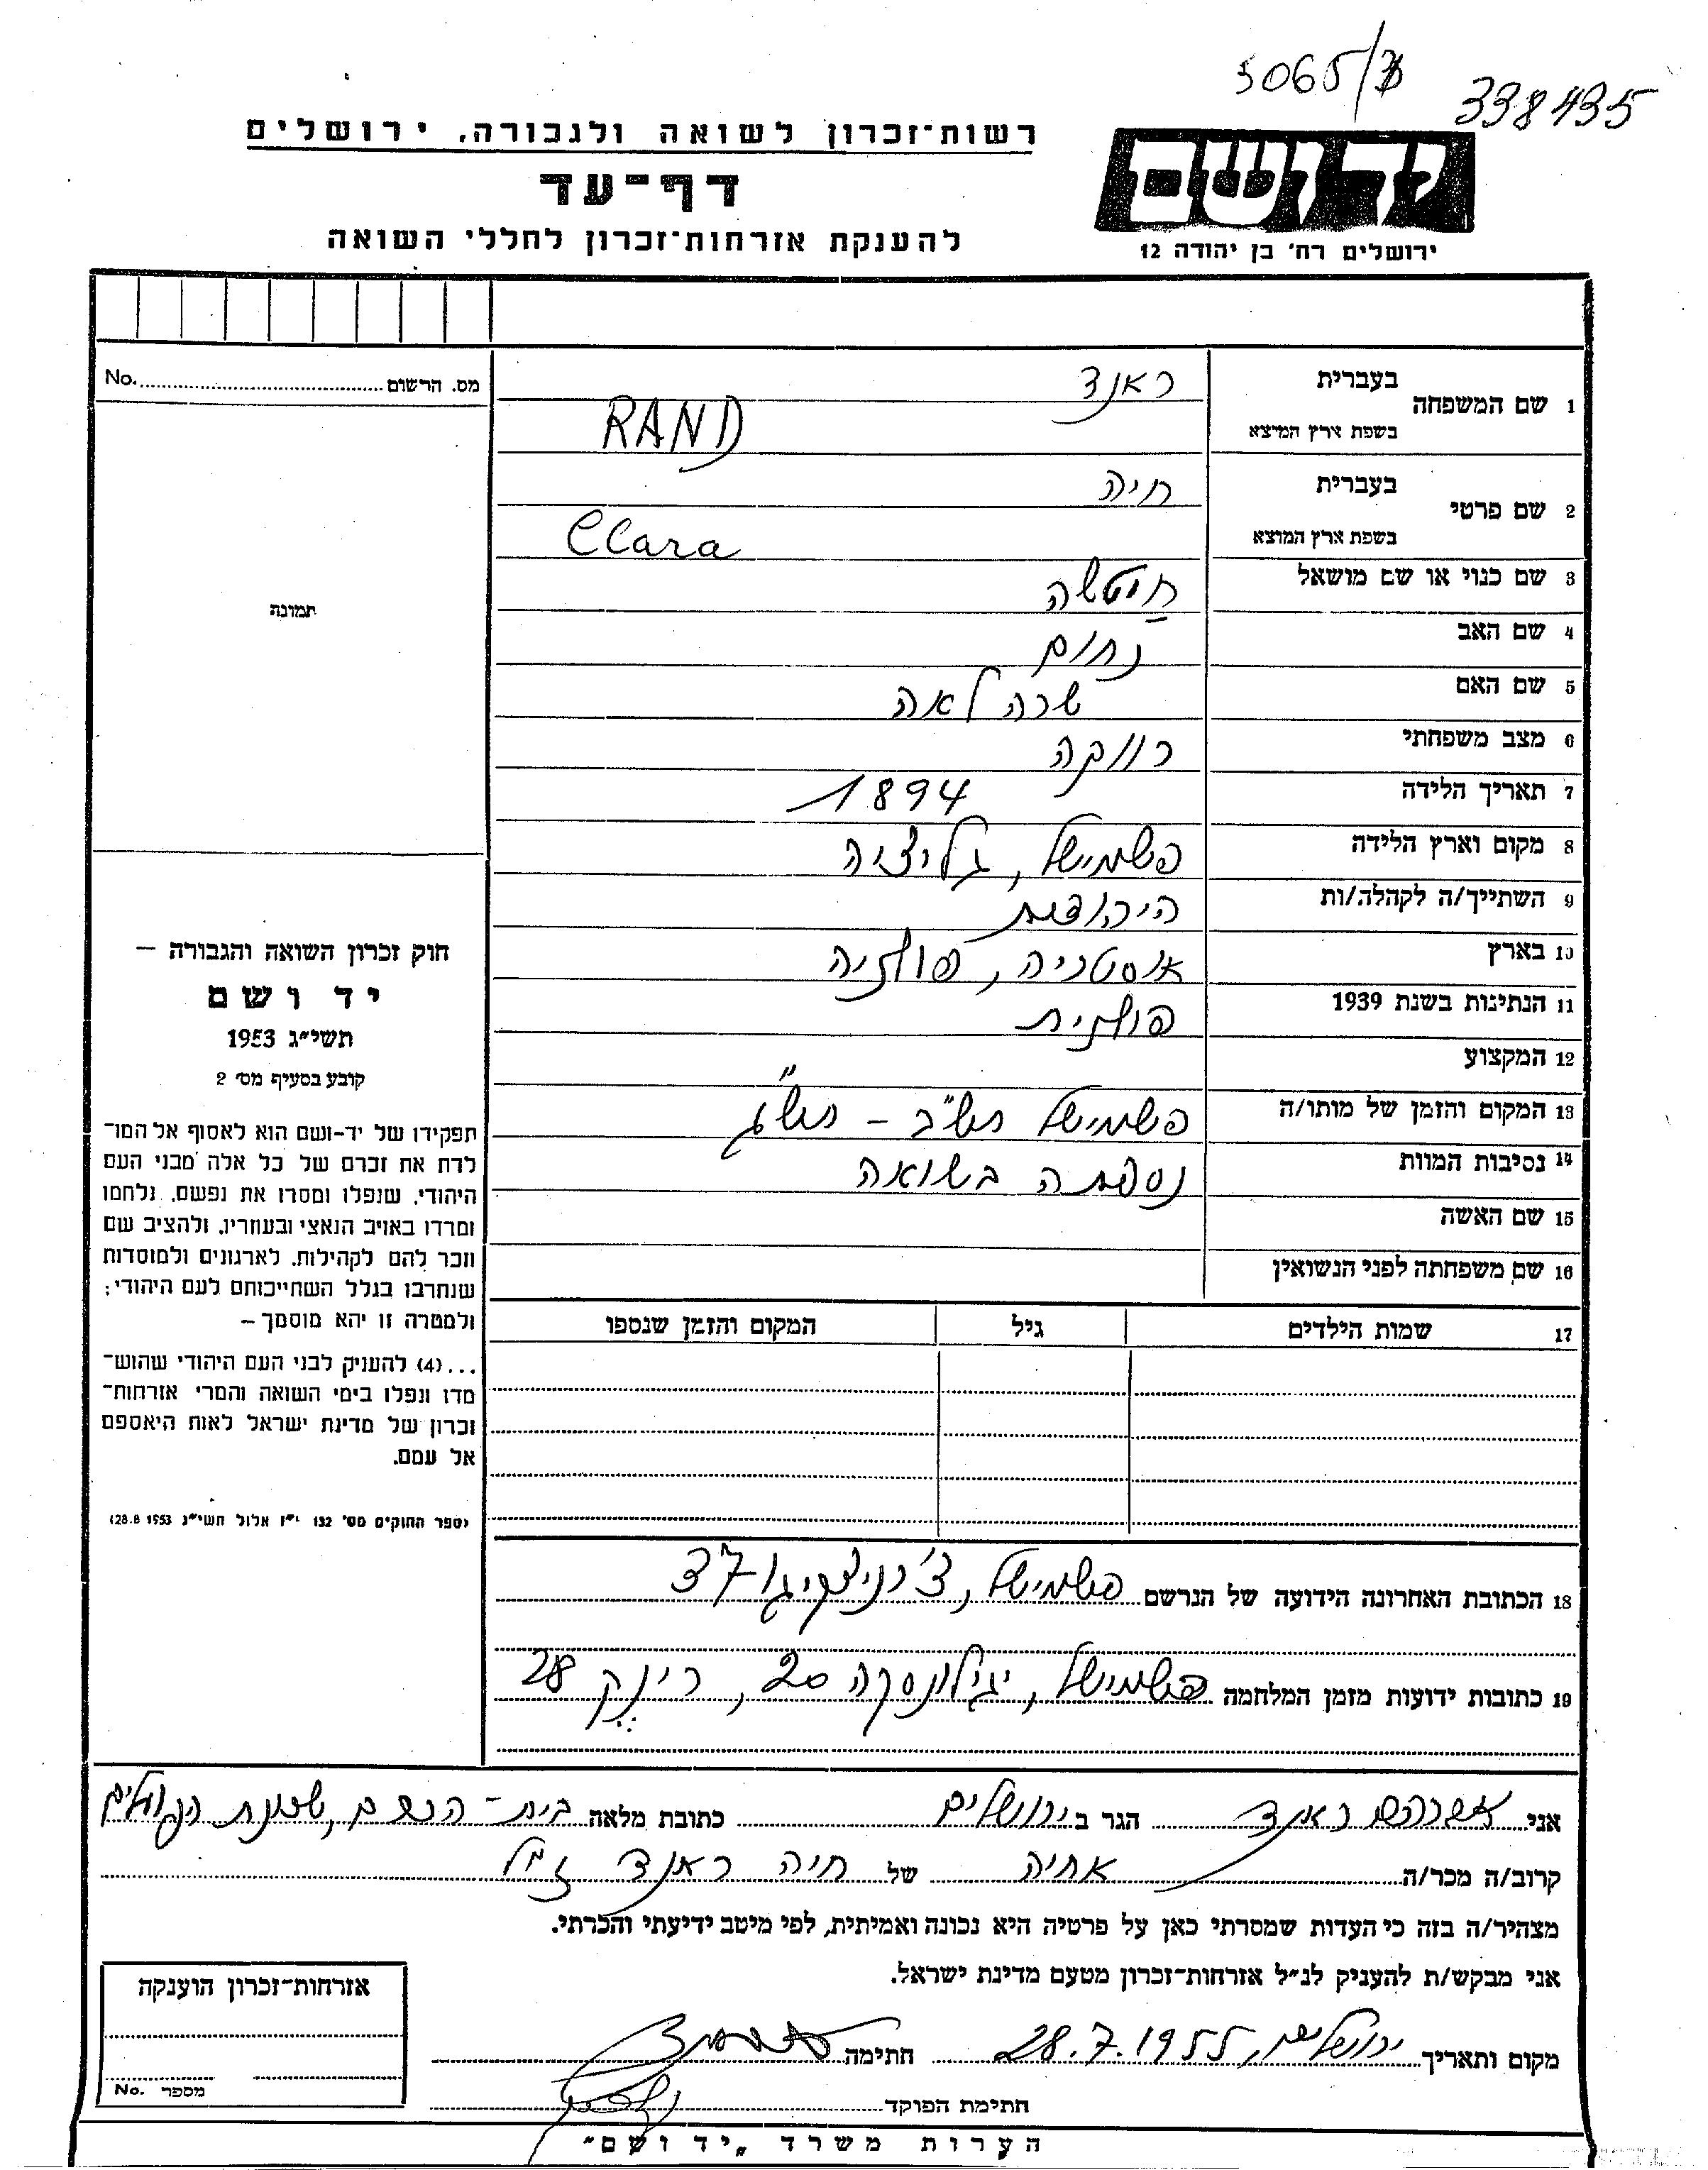 5065/3
338435
רשות־זכרון לשואה ולגבורה, ירושלים
ידושם
דף־עד
להענקת אזרחות־זכרון לחללי השואה
ירושלים רח׳ בן יהודה 12
מס. הרשום No.
1 שם המשפחה בעברית ראנד
בשפת ארץ המוצא RAND
2 שם פרטי בעברית חיה
בשפת ארץ המוצא Clara
3 שם כנוי או שם מושאל חייטשה
4 שם האב נחום
5 שם האם שרה לאה
6 מצב משפחתי רווקה
7 תאריך הלידה 1894
8 מקום וארץ הלידה פשמישל, גליציה
9 השתייך/ה לקהלה/ות היהודית
10 בארץ אוסטריה, פולניה
11 הנתינות בשנת 1939 פולנית
12 המקצוע
13 המקום והזמן של מותו/ה פשמישל תש"ב – תש"ג
14 נסיבות המוות נספתה בשואה
15 שם האשה
16 שם משפחתה לפני הנשואין
17 שמות הילדים גיל המקום והזמן שנספו
תמונה
חוק זכרון השואה והגבורה –
יד ושם
תשי״ג 1953
קובע בסעיף מס׳ 2
תפקידו של יד-ושם הוא לאסוף אל המו־
לדת את זכרם של כל אלה מבני העם
היהודי, שנפלו ומסרו את נפשם, נלחמו
ומרדו באויב הנאצי ובעוזריו, ולהציב שם
וזכר להם לקהילות, לארגונים ולמוסדות
שנחרבו בגלל השתייכותם לעם היהודי;
ולמטרה זו יהא מוסמך –
...(4) להעניק לבני העם היהודי שהוש־
מדו ונפלו בימי השואה והמרי אזרחות־
זכרון של מדינת ישראל לאות היאספם
אל עמם.
(ספר החוקים מס׳ 132 י״ז אלול תשי״ג 28.8.1953)
18 הכתובת האחרונה הידועה של הנרשם פשמישל, צ'רניצקיגו 37
19 כתובות ידועות מזמן המלחמה פשמישל, יגילונסקה 20, רינק 28
אני אברהם ראנד הגר ב ירושלים כתובת מלאה בית-הכרם, שכונת הפועלים
קרוב/ה מכר/ה אחיה של חיה ראנד ז"ל
מצהיר/ה בזה כי העדות שמסרתי כאן על פרטיה היא נכונה ואמיתית, לפי מיטב ידיעתי והכרתי.
אני מבקש/ת להעניק לנ״ל אזרחות־זכרון מטעם מדינת ישראל.
מקום ותאריך ירושלים, 28.7.1955 חתימה
חתימת הפוקד
אזרחות־זכרון הוענקה
מספר No.
הערות משרד „יד ושם״